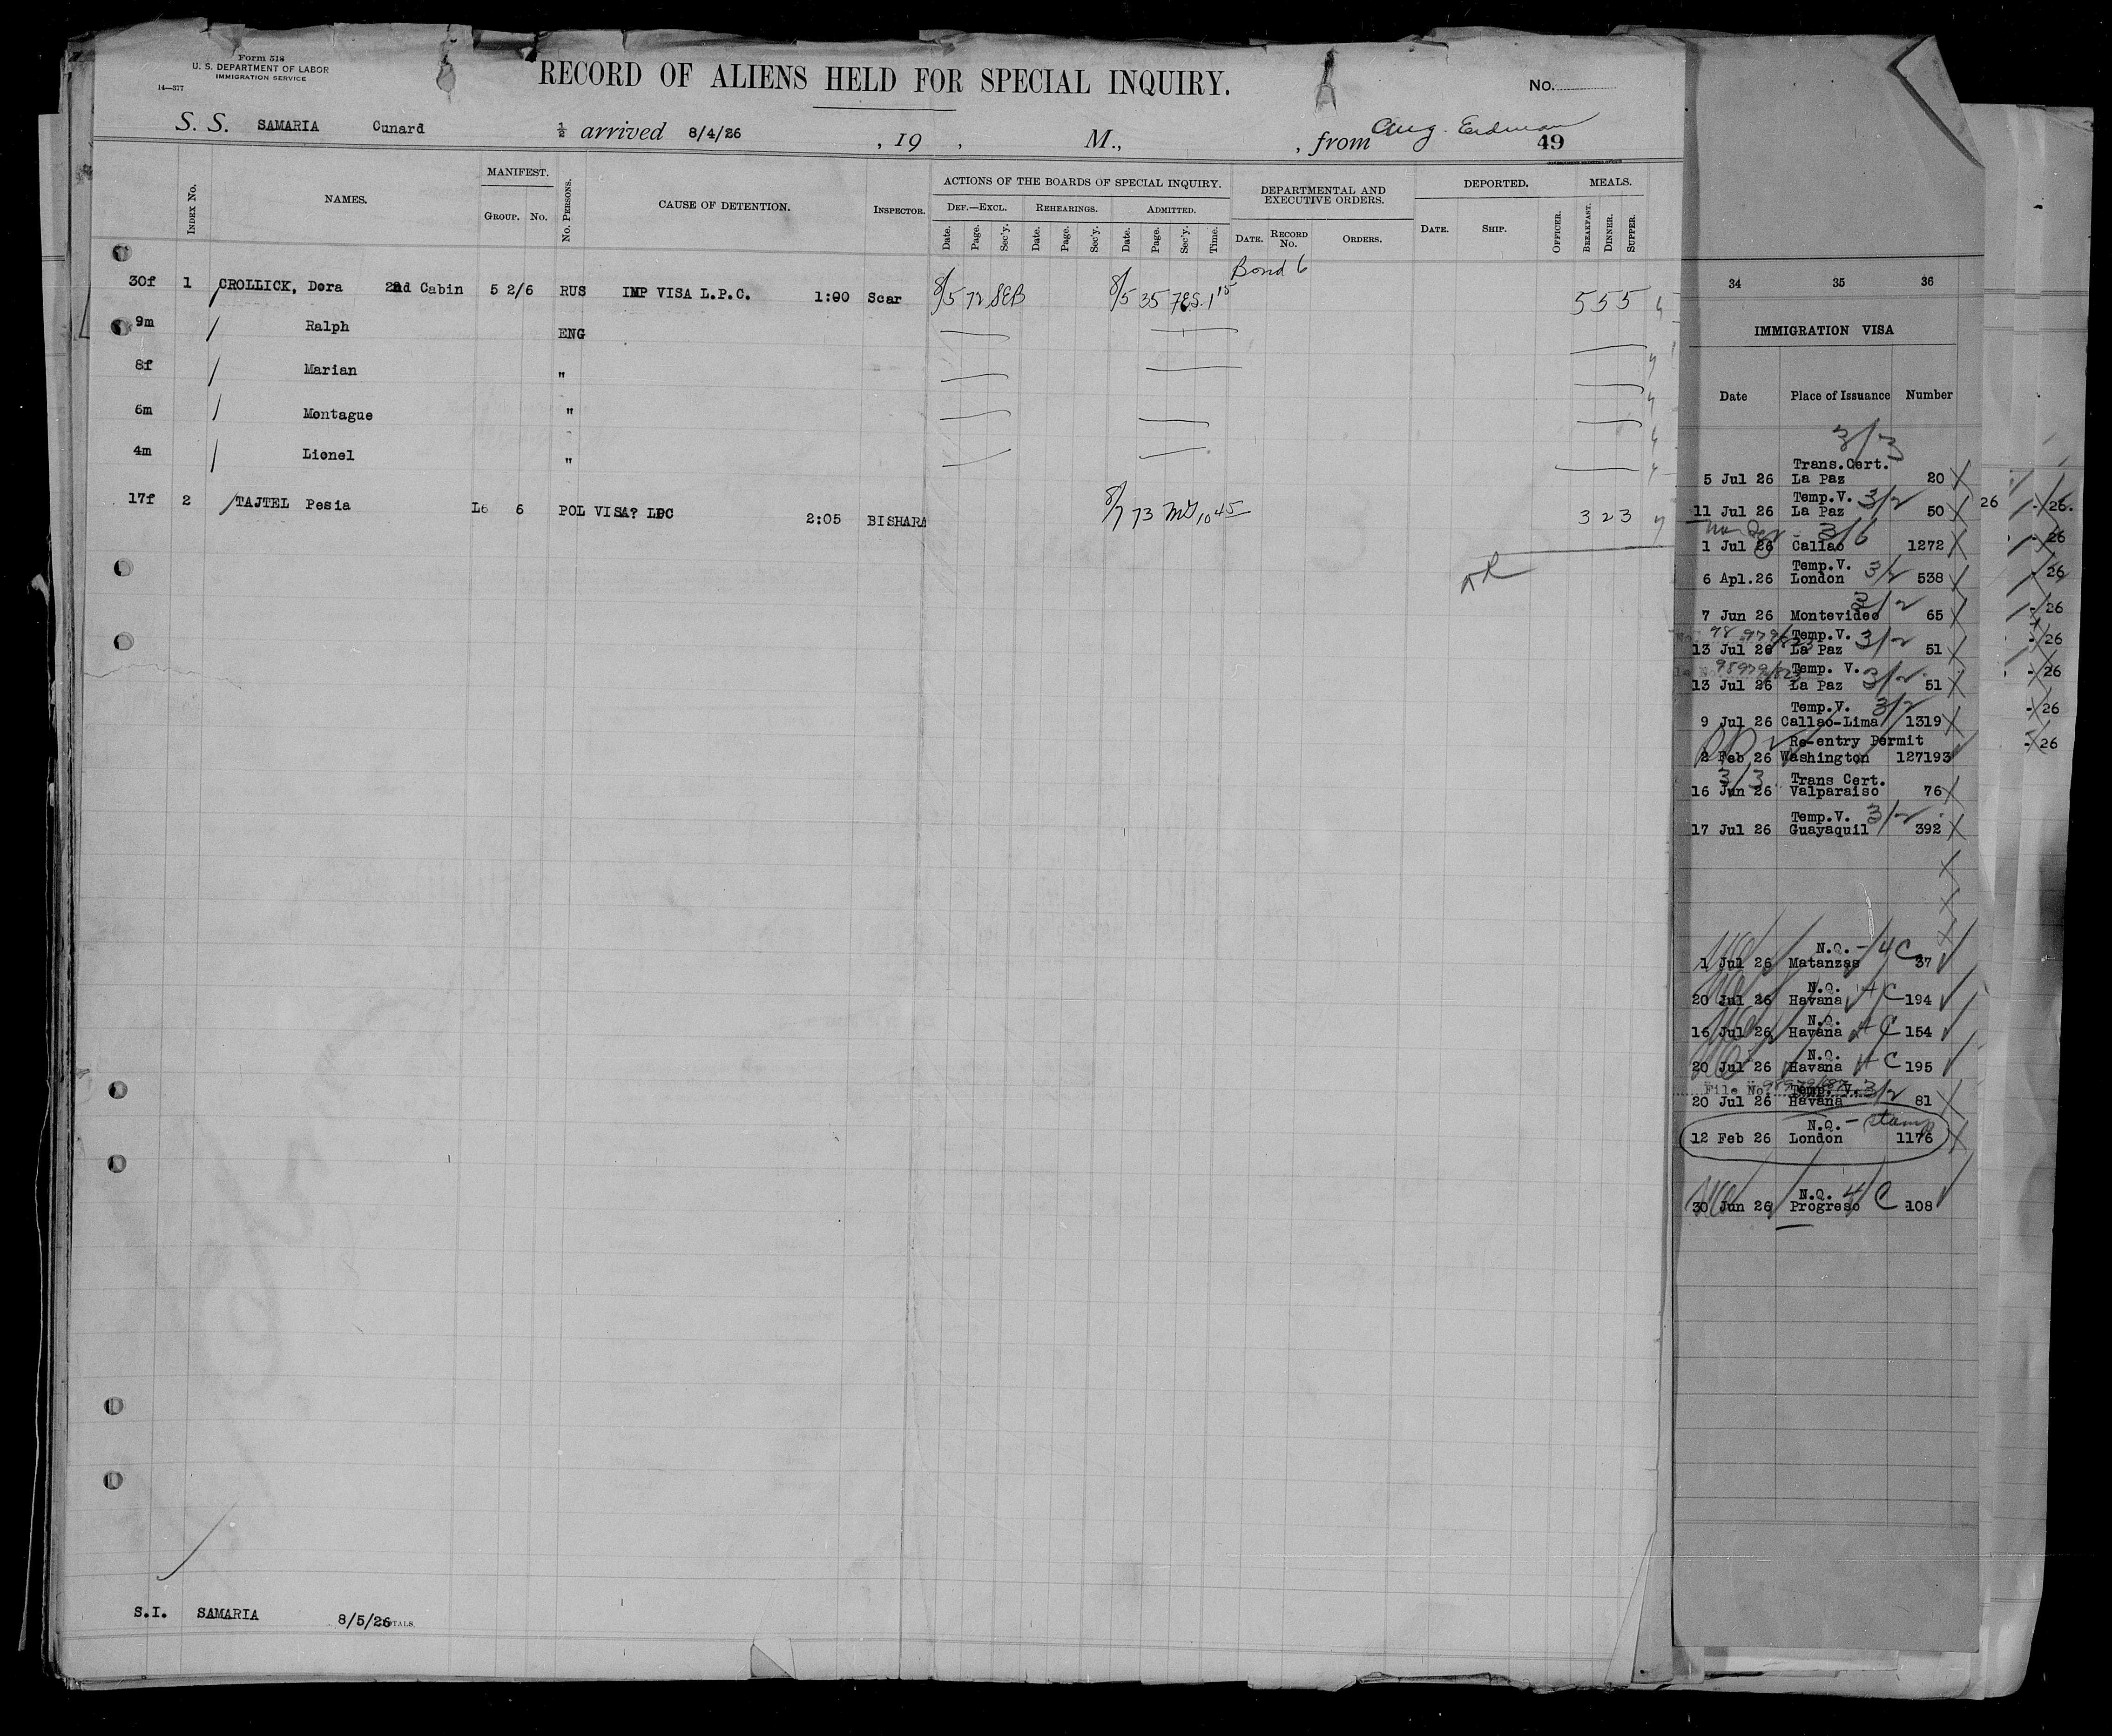 Form 518
U. S. DEPARTMENT OF LABOR
IMMIGRATION SERVICE
14—377
RECORD OF ALIENS HELD FOR SPECIAL INQUIRY.
No.
S. S. SAMARIA Cunard ½ arrived 8/4/26 , 19 , M., , from Aug. Erdman
49
INDEX No. NAMES. MANIFEST. GROUP. No. No. PERSONS. CAUSE OF DETENTION. INSPECTOR.
ACTIONS OF THE BOARDS OF SPECIAL INQUIRY.
DEF.—EXCL. REHEARINGS. ADMITTED.
Date. Page. Sec'y. Date. Page. Sec'y. Date. Page. Sec'y. Time.
DEPARTMENTAL AND EXECUTIVE ORDERS.
DATE. RECORD No. ORDERS.
DEPORTED.
DATE. SHIP. OFFICER.
MEALS.
BREAKFAST. DINNER. SUPPER.
Bond 6
30f 1 CROLLICK, Dora 2nd Cabin 5 2/6 RUS IMP VISA L.P.C. 1:00 Scar 8/5 72 SEB 8/5 35 7ES. 1 15 5 5 5
9m Ralph ENG
8f Marian "
6m Montague "
4m Lionel "
17f 2 TAJTEL Pesia L6 6 POL VISA? LPC 2:05 BISHARA 8/7 73 10 45 3 2 3
S.I. SAMARIA 8/5/26
TOTALS
34 35 36
IMMIGRATION VISA
Date Place of Issuance Number
3/3
Trans.Cert.
5 Jul 26 La Paz 20
Temp.V. 3/2
11 Jul 26 La Paz 50
3/6
1 Jul 26 Callao 1272
Temp.V. 3/2
6 Apl.26 London 538
3/2
7 Jun 26 Montevideo 65
Temp.V. 3/2
13 Jul 26 La Paz 51
Temp. V. 3/2
13 Jul 26 La Paz 51
Temp.V. 3/2
9 Jul 26 Callao-Lima 1319
Re-entry Permit
2 Feb 26 Washington 127193
3/3 Trans Cert.
16 Jun 26 Valparaiso 76
Temp.V. 3/2
17 Jul 26 Guayaquil 392
N.Q. - 4 C
1 Jul 26 Matanzas 37
N.Q. 4 C
20 Jul 26 Havana 194
N.Q. 4 C
16 Jul 26 Havana 154
N.Q. 4 C
20 Jul 26 Havana 195
File No. Temp. V. 3/2
20 Jul 26 Havana 81
N.Q. - stamp
12 Feb 26 London 1176
N.Q. 4 C
30 Jun 26 Progreso 108
26 26.
26
26
26
26
26
26
26